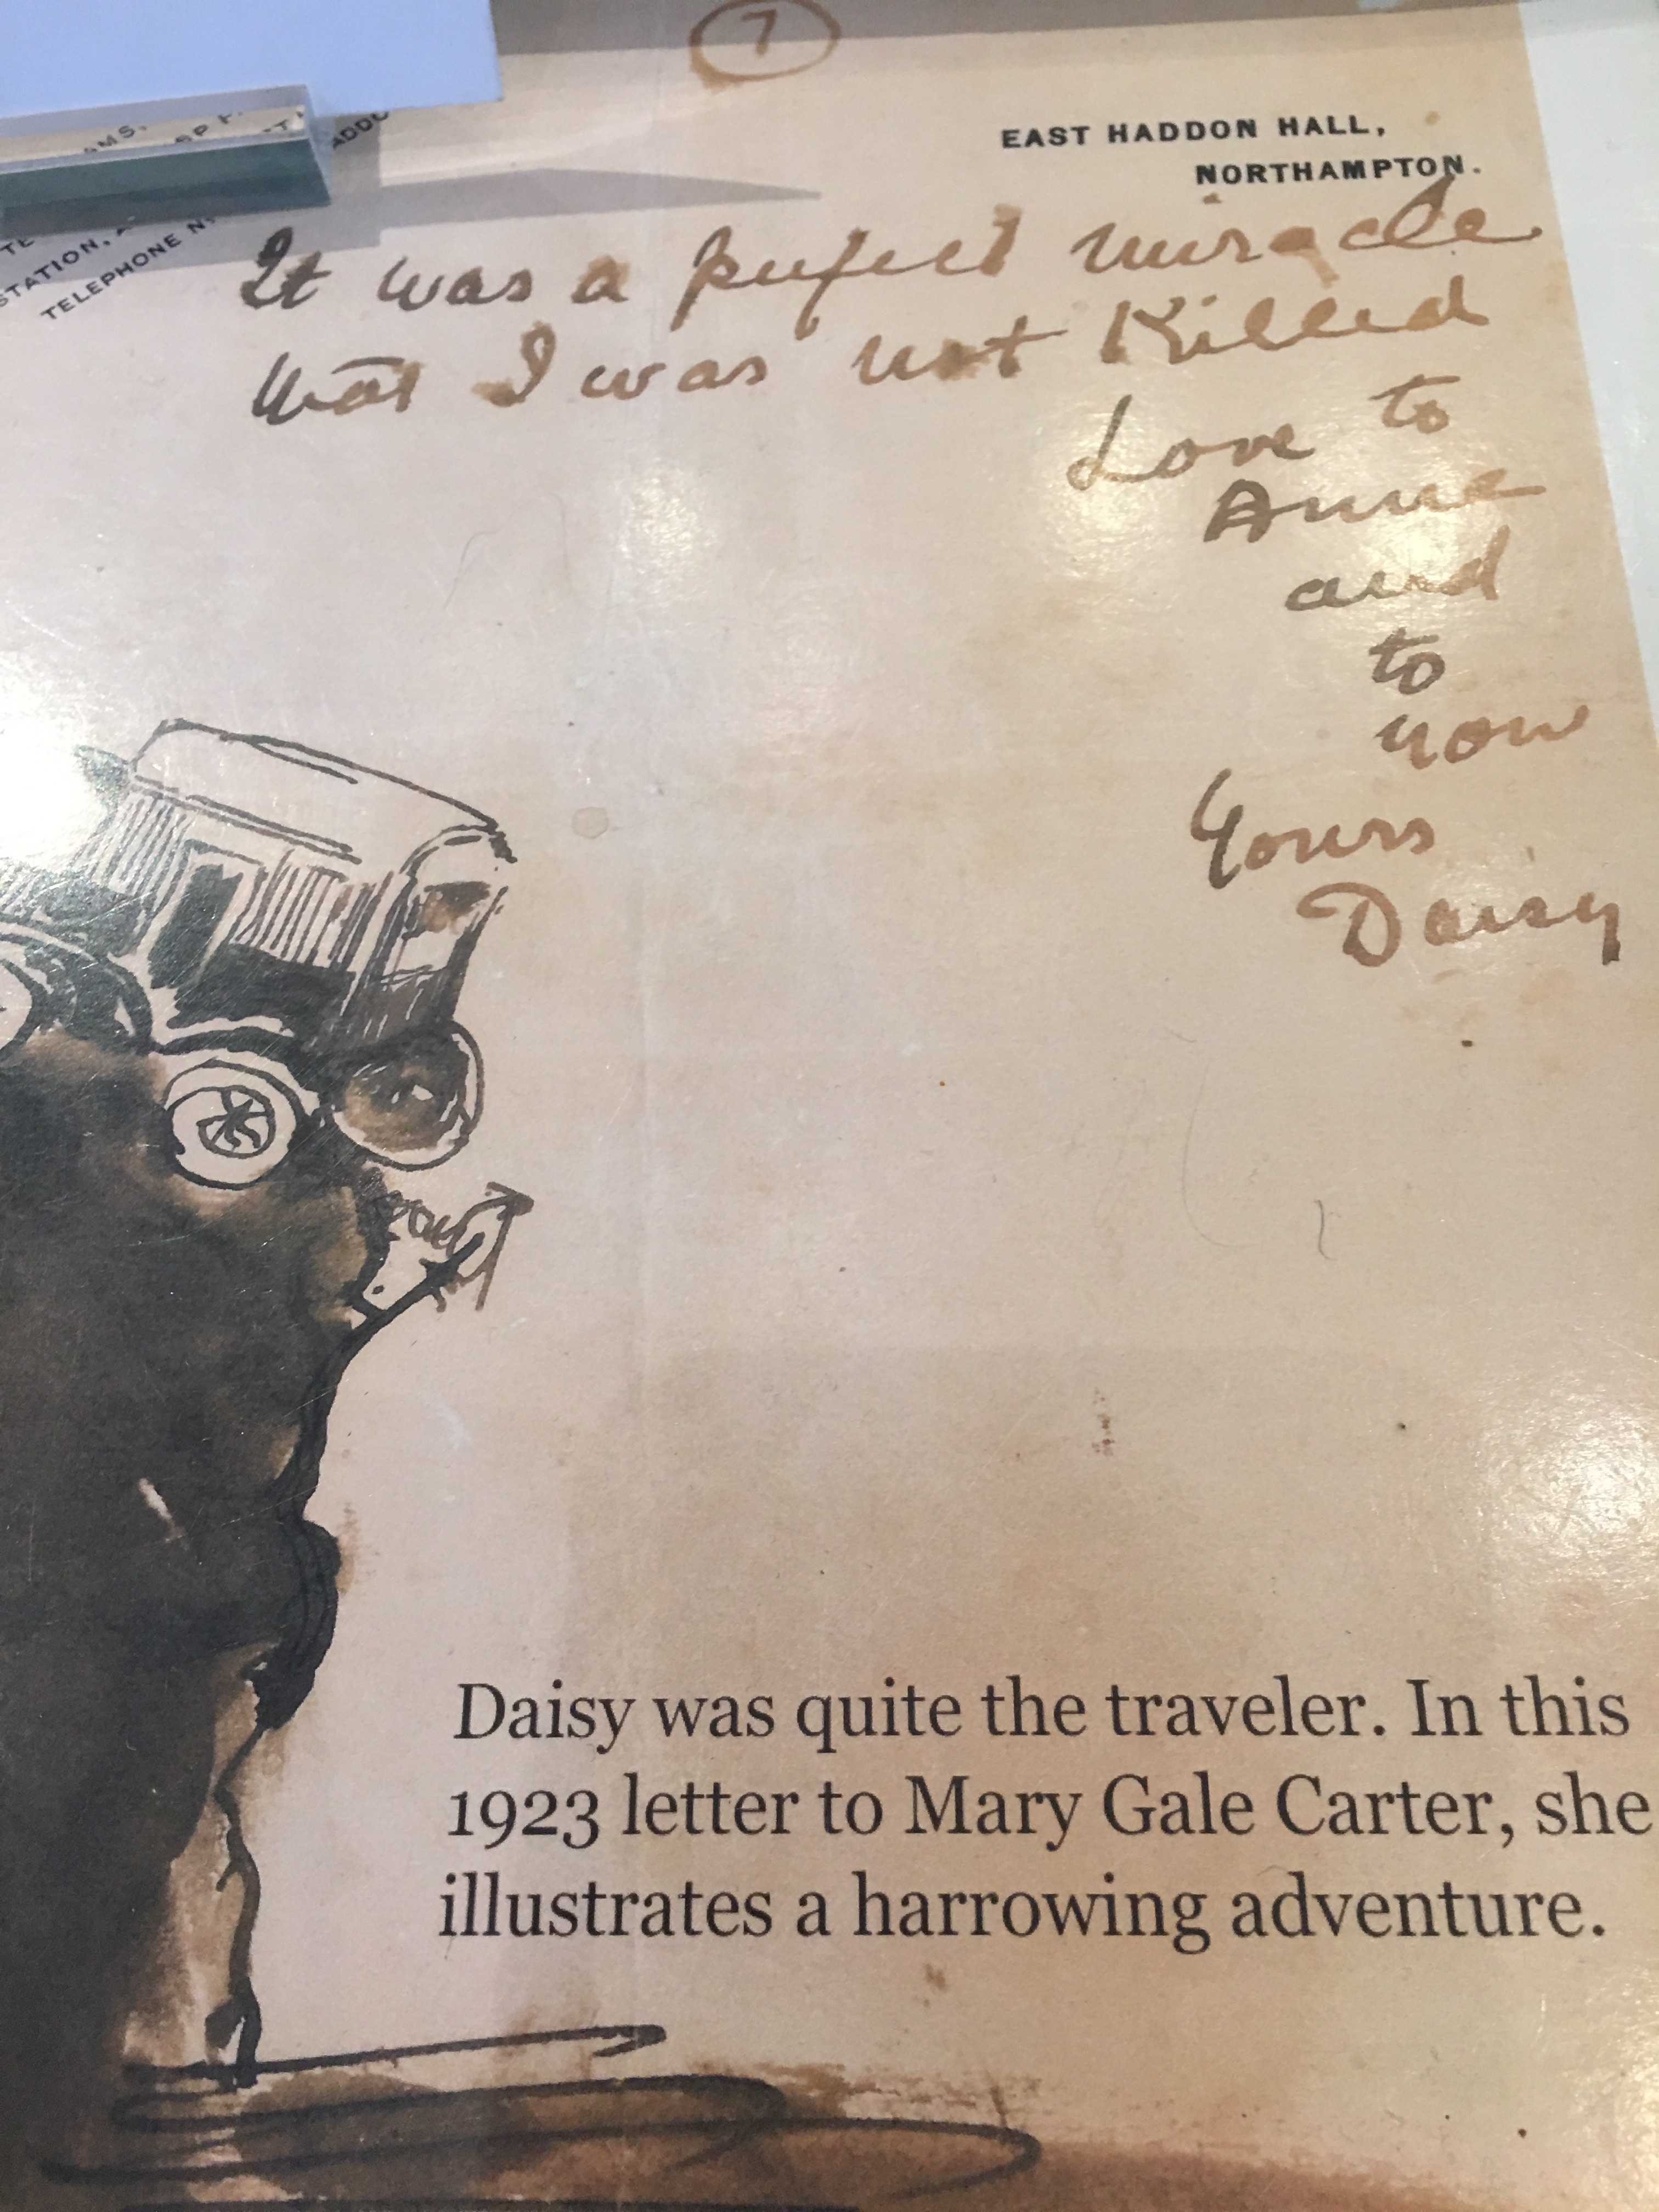 7
EAST HADDON HALL,
NORTHAMPTON.
AMS.
STATION,
TELEPHONE N
It was a perfect miracle
that I was not Killed
Love to
Anne
and
to
you
Yours
Daisy
Daisy was quite the traveler. In this
1923 letter to Mary Gale Carter, she
illustrates a harrowing adventure.